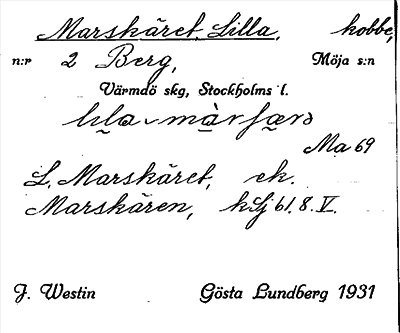 Marskäret, Lilla, kobbe,
n:r 2 Berg, Möja s:n
Värmdö skg, Stockholms l.
Ma 69
L. Marskäret, ek.
Marskären,
J. Westin Gösta Lundberg 1931